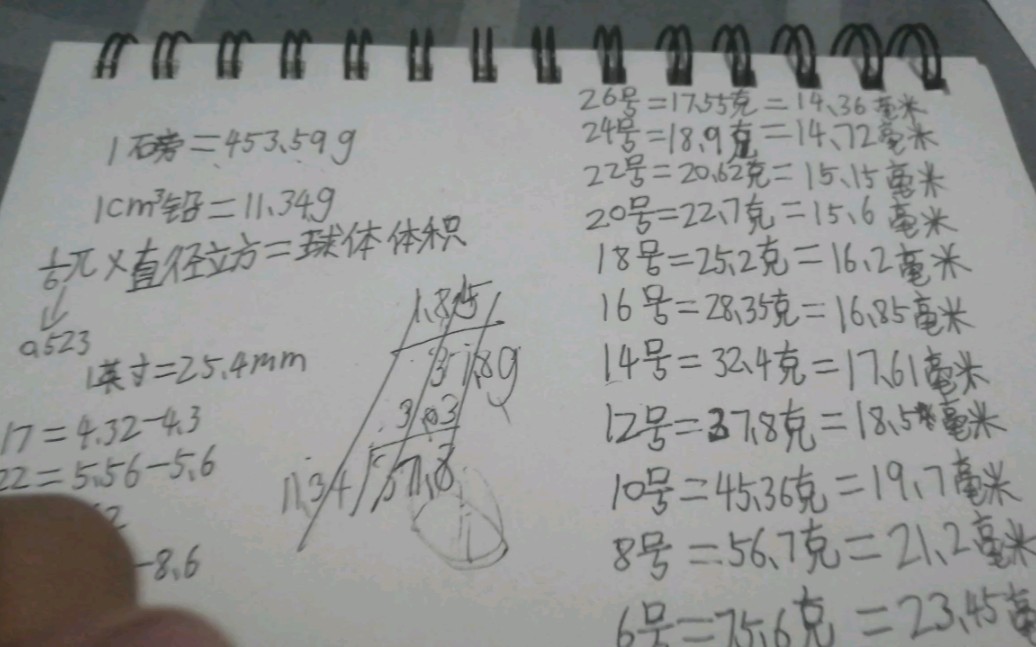 1石旁=453.59g
1cm³铅=11.34g
1/6π×直径立方=球体体积
0.523
1英寸=25.4mm
17=4.32-4.3
22=5.56-5.6
-8.6
1.815
37.8g
3.03
11.34 37.8
26号=17.55克=14.36毫米
24号=18.9克=14.72毫米
22号=20.62克=15.15毫米
20号=22.7克=15.6毫米
18号=25.2克=16.2毫米
16号=28.35克=16.85毫米
14号=32.4克=17.61毫米
12号=37.8克=18.5毫米
10号=45.36克=19.7毫米
8号=56.7克=21.2毫米
6号=75.6克=23.45毫